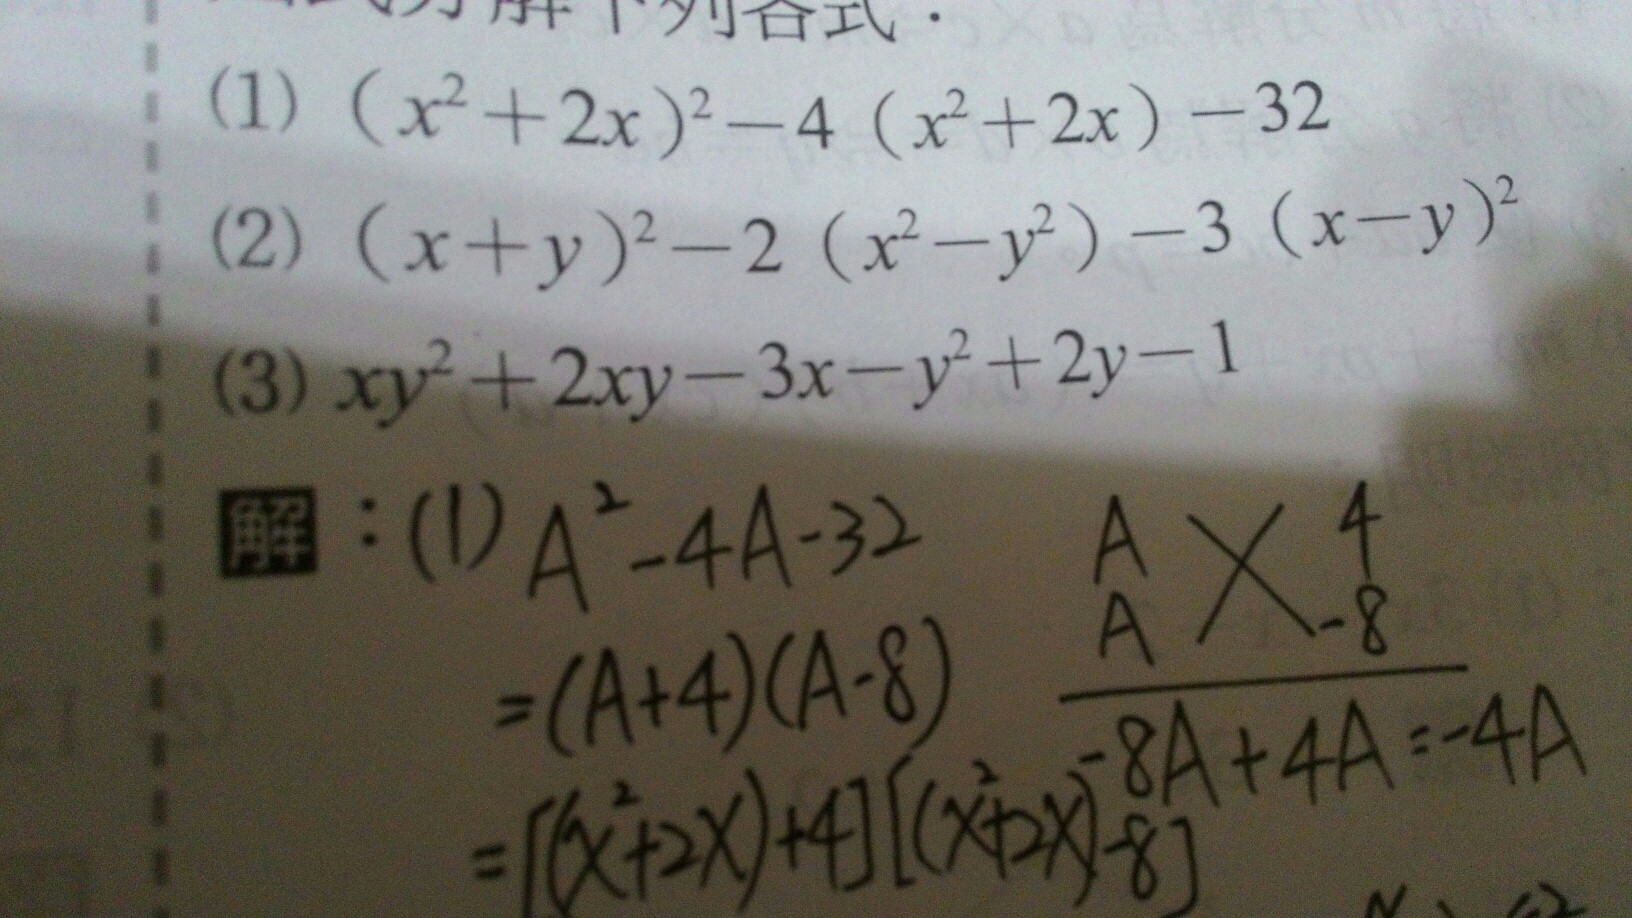 分解下列各式：
(1) (x²+2x)²−4(x²+2x)−32
(2) (x+y)²−2(x²−y²)−3(x−y)²
(3) xy²+2xy−3x−y²+2y−1
解：(1) A²-4A-32
=(A+4)(A-8)
=[(x²+2x)+4][(x²+2x)-8]
A 4
A -8
-8A+4A=-4A